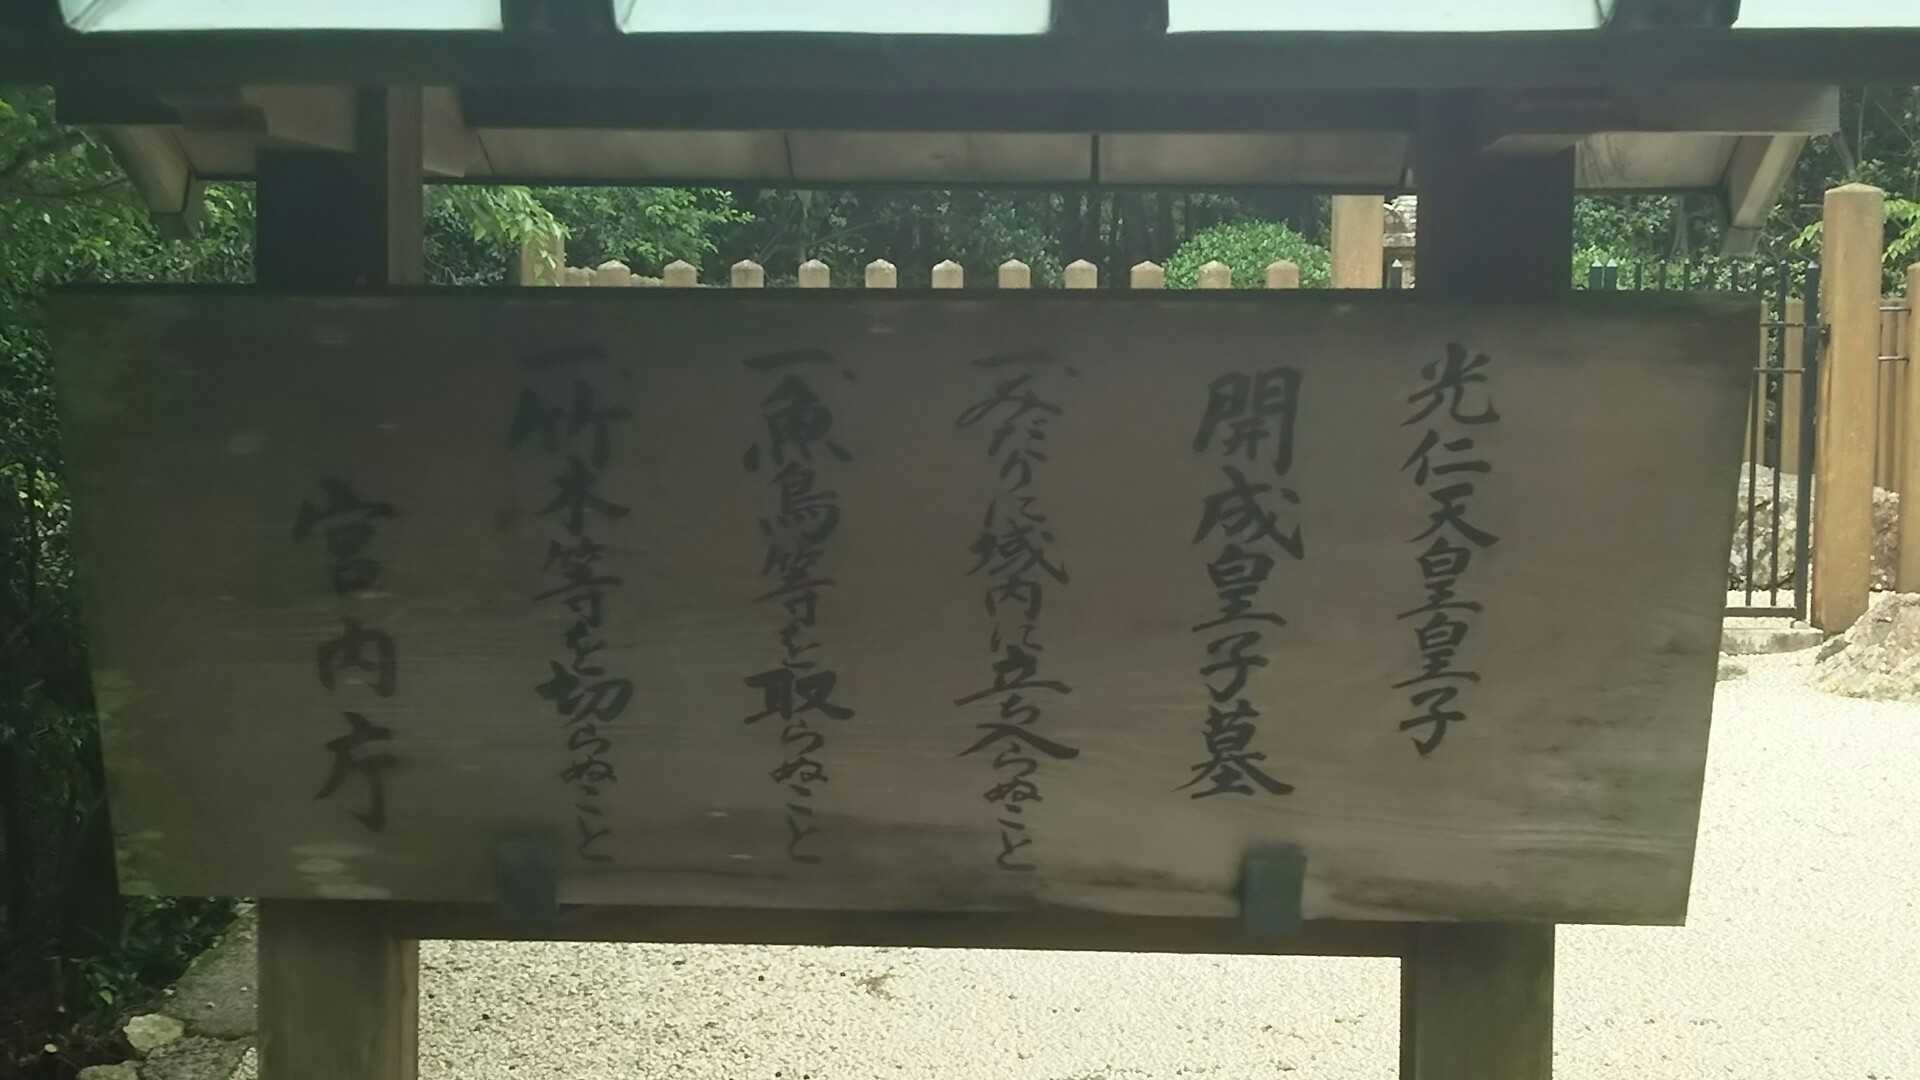 光仁天皇皇子
開成皇子墓
一、みだりに域内に立ち入らぬこと
一、魚鳥等を取らぬこと
一、竹木等を切らぬこと
宮内庁